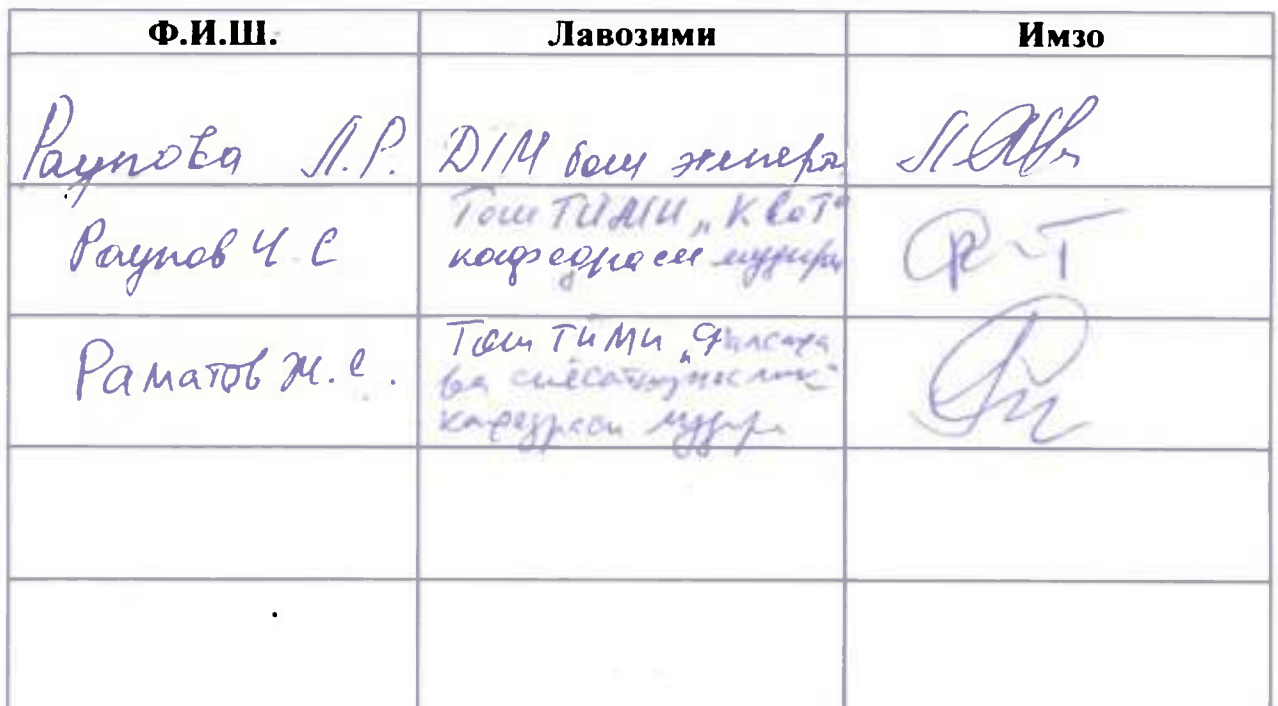 Ф.И.Ш. Лавозими Имзо
Раупова Л.Р. DIM бош эксперт
Раупов Ч.С ТошТИЖМИ „К ва Т“
кафедраси мудири
Раматов Ж.С. ТошТЙМИ „Фалсафа
ва сиёсатшунослик“
кафедраси мудири